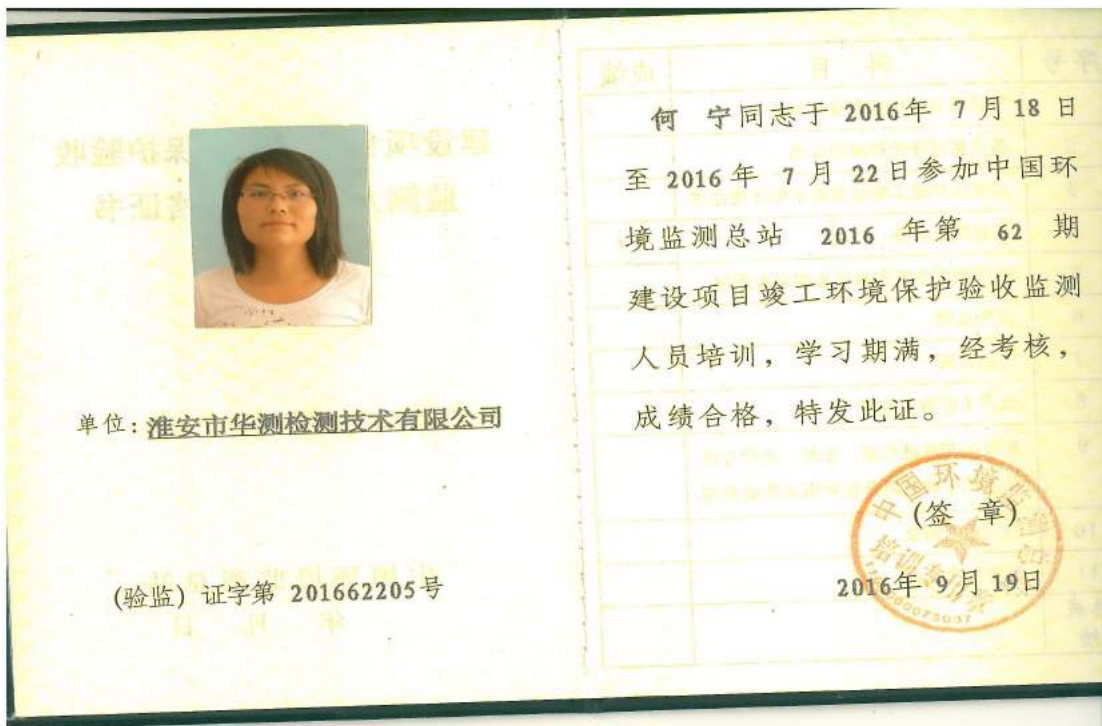 单位：淮安市华测检测技术有限公司
(验监) 证字第 201662205号
何 宁同志于 2016年 7 月 18 日
至 2016 年 7 月 22 日参加中国环
境监测总站 2016 年第 62 期
建设项目竣工环境保护验收监测
人员培训，学习期满，经考核，
成绩合格，特发此证。
中国环境监测总站
(签 章)
培训专用章
2016年 9 月 19日